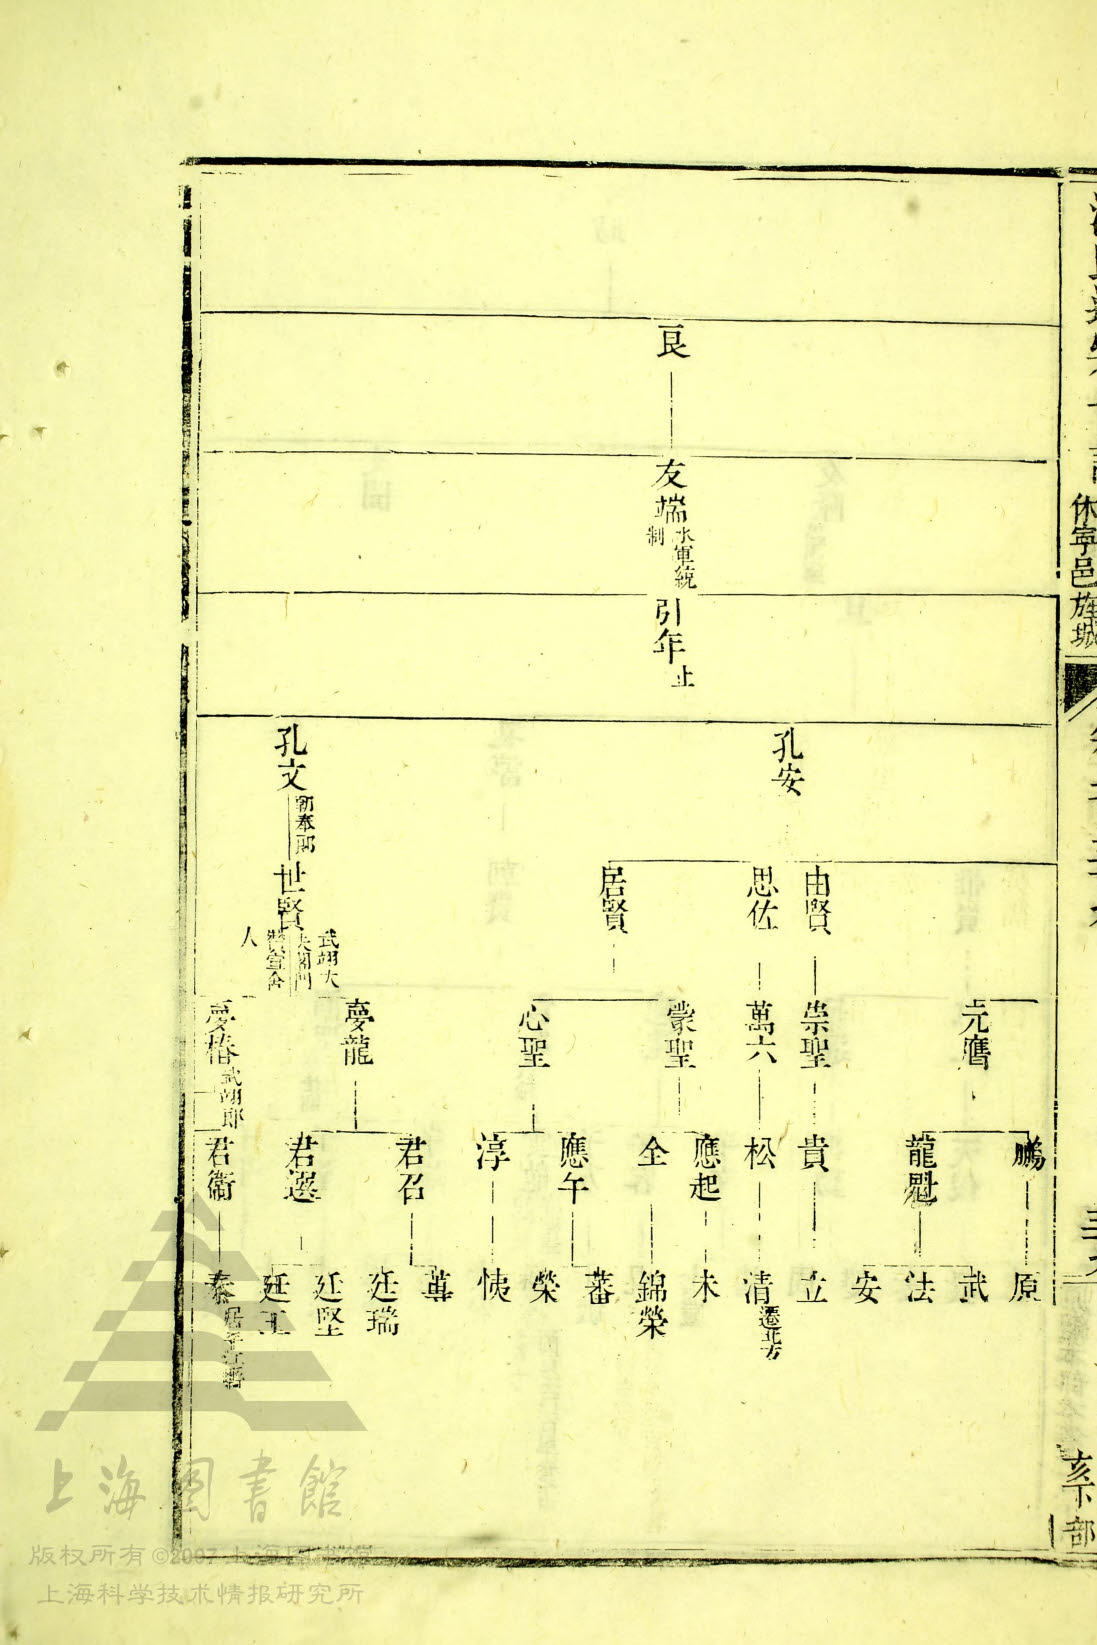 休寧邑
族城
亥下
部
艮
友端
水軍統
制
引年
止
孔安
孔文
由賢
思佐
居賢
世賢
武翊大
人
元鷹
崇聖
萬六
蒙聖
心聖
夢龍
夢椿
武翊郎
鵬
龍魁
貴
松
應起
全
應午
淳
君召
君選
君衛
原
武
法
安
立
清
遷北方
未
錦榮
蕃
榮
廷瑞
廷堅
廷玉
泰
上海圖書館
版权所有©2007上海图书馆
上海科学技术情报研究所